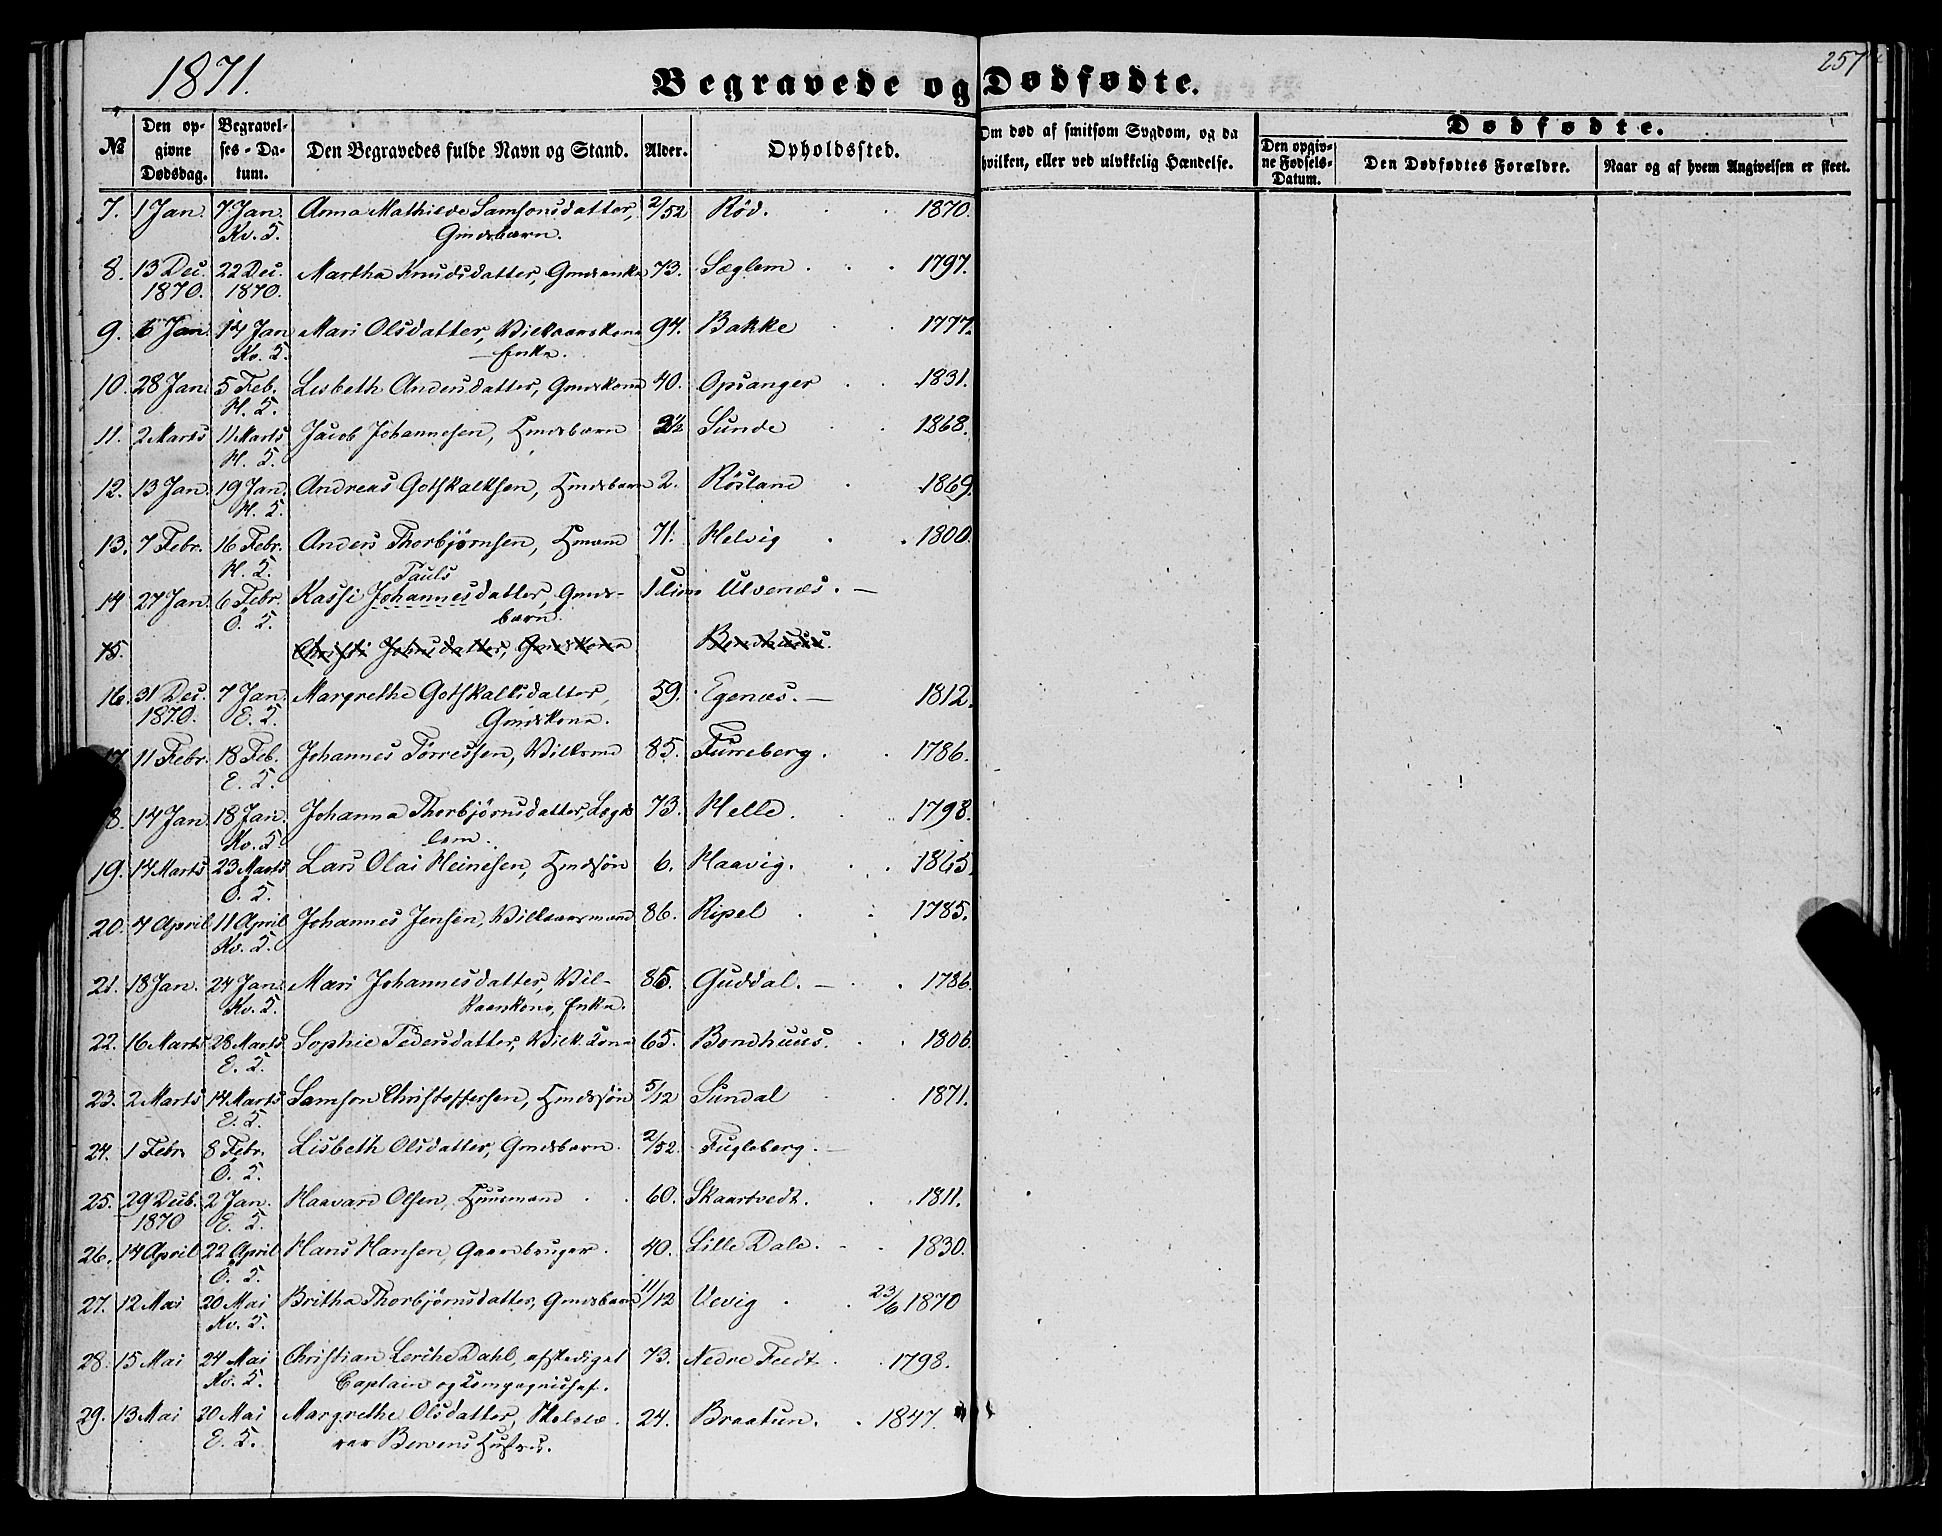 1871.
257
Begravede og Dødfødte.
№
Den opgivne Dødsdag.
Begravelses-Datum.
Den Begravedes fulde Navn og Stand.
Alder.
Opholdssted.
Om død af smitsom Sygdom, og da hvilken, eller ved ulykkelig Hændelse.
Dødfødte.
Den opgivne Fødsels-Datum.
Den Dødfødtes Forældre.
Naar og af hvem Angivelsen er skeet.
7. 1 Jan. 7 Jan. Anna Mathilde Samsonsdatter, 2/52 Röd. 1870.
Kv. S. Gmdsbarn.
8. 13 Dec. 22 Dec. Martha Knudsdatter, Gmdsenke 73. Sæglem. 1797.
1870. 1870.
9. 6 Jan. 14 Jan Mari Olsdatter, Vilkaarskone 94. Bakke 1777.
Kv. S. Enke.
10. 28 Jan. 5 Feb. Lisbeth Andersdatter, Gmdskone 40. Opsanger 1831.
H. S.
11. 2 Marts 11 Marts Jacob Johannesen, Hmdsbarn 2½ Sunde 1868.
H. S.
12. 13 Jan. 19 Jan. Andreas Gothskalksen, Hmdsbarn 2. Rösland 1869.
H. S.
13. 7 Febr. 16 Febr. Anders Thorbjörnsen, Hmand 71. Helvig 1800.
H. S. Pauls
14 27 Jan. 6 Febr. Kassi Johannesdatter, Gmds- 1 time Ulvenæs.
Ö. S. barn.
15. Christi Johnsdatter, Gmdskone Bondhuus.
16. 31 Dec. 7 Jan. Margrethe Gothskalksdatter, 59. Egenæs. 1812.
1870. E. S. Gmdskone.
17 11 Febr. 18 Feb. Johannes Törressen, Vilksmd 85. Fureberg. 1786.
E. S.
8. 14 Jan. 18 Jan. Johanna Thorbjörnsdatter, Lægds 73. Helle. 1798.
Kv. S lem.
19. 14 Marts 23 Marts Lars Olai Heinesen, Hmdsön 6. Haavig. 1865.
Ö. S.
20. 4 April 11 April Johannes Jensen, Vilkaarsmand 86. Ripel 1785.
Kv. S.
21. 18 Jan. 24 Jan. Mari Johannesdatter, Vil- 85. Guddal. 1786.
Kv. S. kaarskone, Enke.
22. 16 Marts 28 Marts Sophie Pedersdatter, Vilk. kone 65. Bondhuus. 1806.
E. S.
23. 2 Marts 14 Marts Samson Christoffersen, Hmdssön 5/12 Sundal 1871.
E. S.
24. 1 Febr 8 Febr. Lisbeth Olsdatter, Gmdsbarn. 2/52. Fugleberg.
Ö. S.
25. 29 Decb. 2 Jan. Haavard Olsen, Huusmand 60. Skaartvedt. 1811.
1870 E. S.
26. 14 April 22 April Hans Hansen, Gaardbruger. 40. Lille Dale. 1830.
Ö. S.
27. 12 Mai 20 Mai Britha Thorbjörnsdatter, Gmdsbarn 11/12 Uevig 23/6 1870
Kv. S.
28. 15 Mai 24 Mai Christian Lerche Dahl, afskediget 73. Nedre Feedt 1798.
Kv. S. Captain og Compagnichef.
29. 13 Mai 20 Mai Margrethe Olsdatter, Skolelæ- 24. Braatun. 1847
E. S. rer Bervens Hustru.